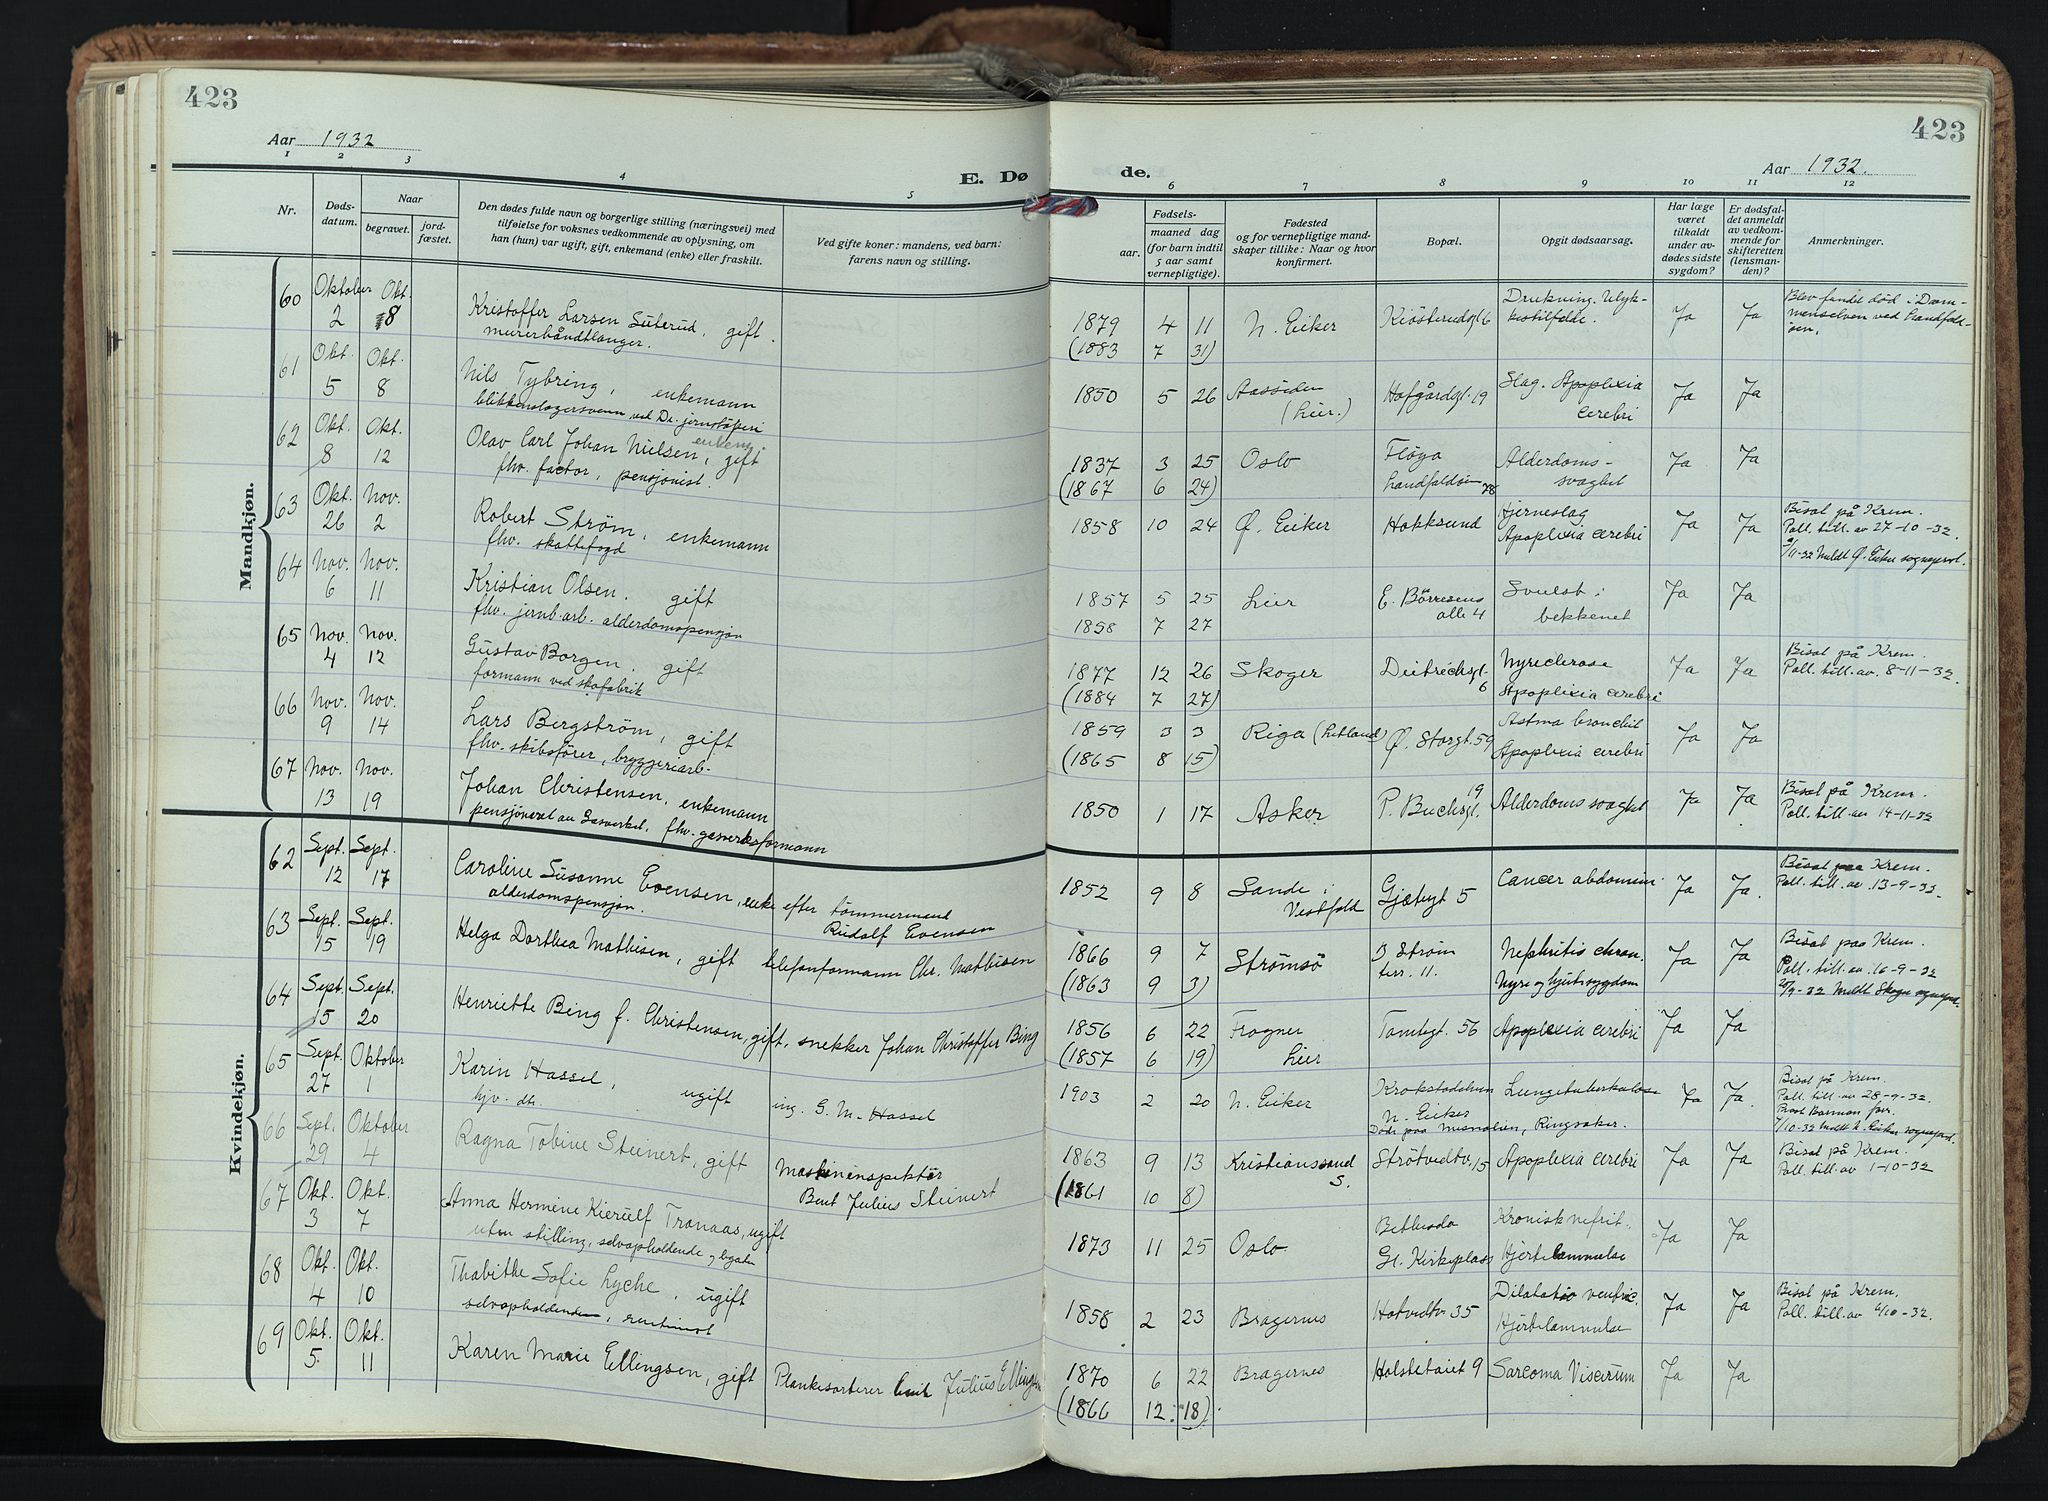 423
Aar 1932
1 2 3 4 5
E. Dø
Nr.
Døds-
datum.
Naar
begravet.
jord-
fæstet.
Den dødes fulde navn og borgerlige stilling (næringsvei) med
tilføielse for voksnes vedkommende av oplysning, om
han (hun) var ugift, gift, enkemand (enke) eller fraskilt.
Ved gifte koner: mandens, ved barn:
farens navn og stilling.
Mandkjøn.
60 Oktober 2 Okt. 8 Kristoffer Larsen Suterud, gift.
murerhåndtlanger.
61 Okt. 5 Okt. 8 Nils Tybring, enkemann
blikkenslagersvenn ved Dr. jernstøperi
62 Okt. 8 Okt. 12 Olav Carl Johan Nielsen, gift enkem.
fhv. factor, pensjonist.
63 Okt. 26 Nov. 2 Robert Strøm, enkemann
fhv. skattefogd
64 Nov. 6 Nov. 11 Kristian Olsen. gift
fhv. jernb.arb. alderdomspensjon
65 Nov. 4 Nov. 12 Gustav Borgen. gift
formann ved skofabrik
66 Nov. 9 Nov. 14 Lars Bergström, gift
fhv. skibsfører, bryggeriarb.
67 Nov. 13 Nov. 19 Johan Christensen, enkemann
pensjonert av Gasverket, fhv. gasverksformann
Kvindekjøn.
62 Sept. 12 Sept. 17 Caroline Susanne Evensen, enke efter tömmermand
alderdomspensjon. Rudolf Evensen
63 Sept. 15 Sept. 19 Helga Dorthea Mathisen, gift telefonformann Chr. Mathisen
64 Sept. 15 Sept. 20 Henriette Bing f. Christensen, gift. snekker Johan Christoffer Bing
65 Sept. 27 Oktober 1 Karin Hassel, ugift ing. G. M. Hassel
hjv. dtr.
66 Sept. 29 Oktober 4 Ragna Tobine Steinert, gift Maskininspektør
Bent Julius Steinert
67 Okt. 3 Okt. 7 Anna Hermine Kierulf Tranaas, ugift
uten stilling, selvopholdende
68 Okt. 4 Okt. 10 Thabithe Sofie Lyche, ugift
selvopholdende, rentenist
69 Okt. 5 Okt. 11 Karen Marie Ellingsen, gift Plankesorterer Emil Julius Ellingsen
423
Aar 1932.
6 7 8 9 10 11 12
de.
Fødsels-
aar.
maaned dag
(for barn indtil
5 aar samt
vernepligtige).
Fødested
og for vernepligtige mand-
skaper tillike: Naar og hvor
konfirmert.
Bopæl.
Opgit dødsaarsag.
Har læge
været
tilkaldt
under av-
dødes sidste
sygdom?
Er dødsfal-
det anmeldt
av vedkom-
mende for
skifteretten
(lensman-
den)?
Anmerkninger.
1879 4 11 N. Eiker Kiøsterudgt 6 Drukning. Ulyk-
kestilfelde. Ja Ja Blev fundet død i Dram-
menselven ved Landfald-
øen.
(1883 7 31)
1850 5 26 Aassiden
(Lier.) Hofgårdgt. 19 Slag. Apoplexia
cerebri Ja Ja
1837 3 25 Oslo Fløya
Landfaldøen 78 Alderdoms-
svaghet Ja Ja
(1867 6 24)
1858 10 24 Ø. Eiker Hokksund Hjerneslag
Apoplexia cerebri Ja Ja Bisat på Krem.
Poll. till. av 27-10-32.
9/11-32 Meldt Ø. Eiker sogneprest.
1857 5 25 Lier E. Børresens
alle 4 Svulst i
bekkenet Ja Ja
1858 7 27
1877 12 26 Skoger Deitrechsgt.
6 Nyreclerose
Apoplexia cerebri Ja Ja Bisat på Krem.
Poll. till. av. 8-11-32.
(1884 7 27)
1859 3 3 Riga (Letland) Ø. Storgt. 59 Astma bronchit
Apoplexia cerebri Ja Ja
(1865 8 15)
1850 1 17 Asker P. Buchsgt. 19 Alderdomssvaghet Ja Ja Bisat på Krem.
Poll. till. av 14-11-32
1852 9 8 Sande i
Vestfold Gjetergt 5 Cancer abdomin. Ja Ja. Bisat paa Krem.
Poll. till. av 13-9-32.
1866 9 7 Strømsö B. Strøm
terr. 11. Nephritis chron.
Nyre og hjertesygdom Ja Ja Bisat paa Krem.
Poll. till. av 16-9-32
20/9-32 Meldt Skoger sognepr.
(1863 9 3)
1856 6 22 Frogner
Lier Tomtegt. 56 Apoplexia cerebri Ja Ja
(1857 6 19)
1903 2 20 N. Eiker Krokstadelven
N. Eiker Lungetuberkulose
Døde paa Mesnalien, Ringsaker. Ja Ja. Bisat på Krem.
Poll. till. av 28-9-32.
7/10-32 Meldt N. Eiker sogneprest.
1863 9 13 Kristianssand
S. Strøtvedtv. 15 Apoplexia cerebri Ja Ja Bisat på Krem.
Poll. till. av 1-10-32
(1861 10 8)
1873 11 25 Oslo Bethesda
Gl. Kirkeplass Kronisk nefrit.
Hjertelammelse Ja Ja
1858 2 23 Bragernes Hotvedtv. 35 Dilatatio ventric.
Hjertelammelse Ja Ja Bisat på Krem.
Poll. till. av 6/10-32.
1870 6 22 Bragernes Holstebøiet 9 Sarcoma Viscerum Ja Ja
(1866 12 18).